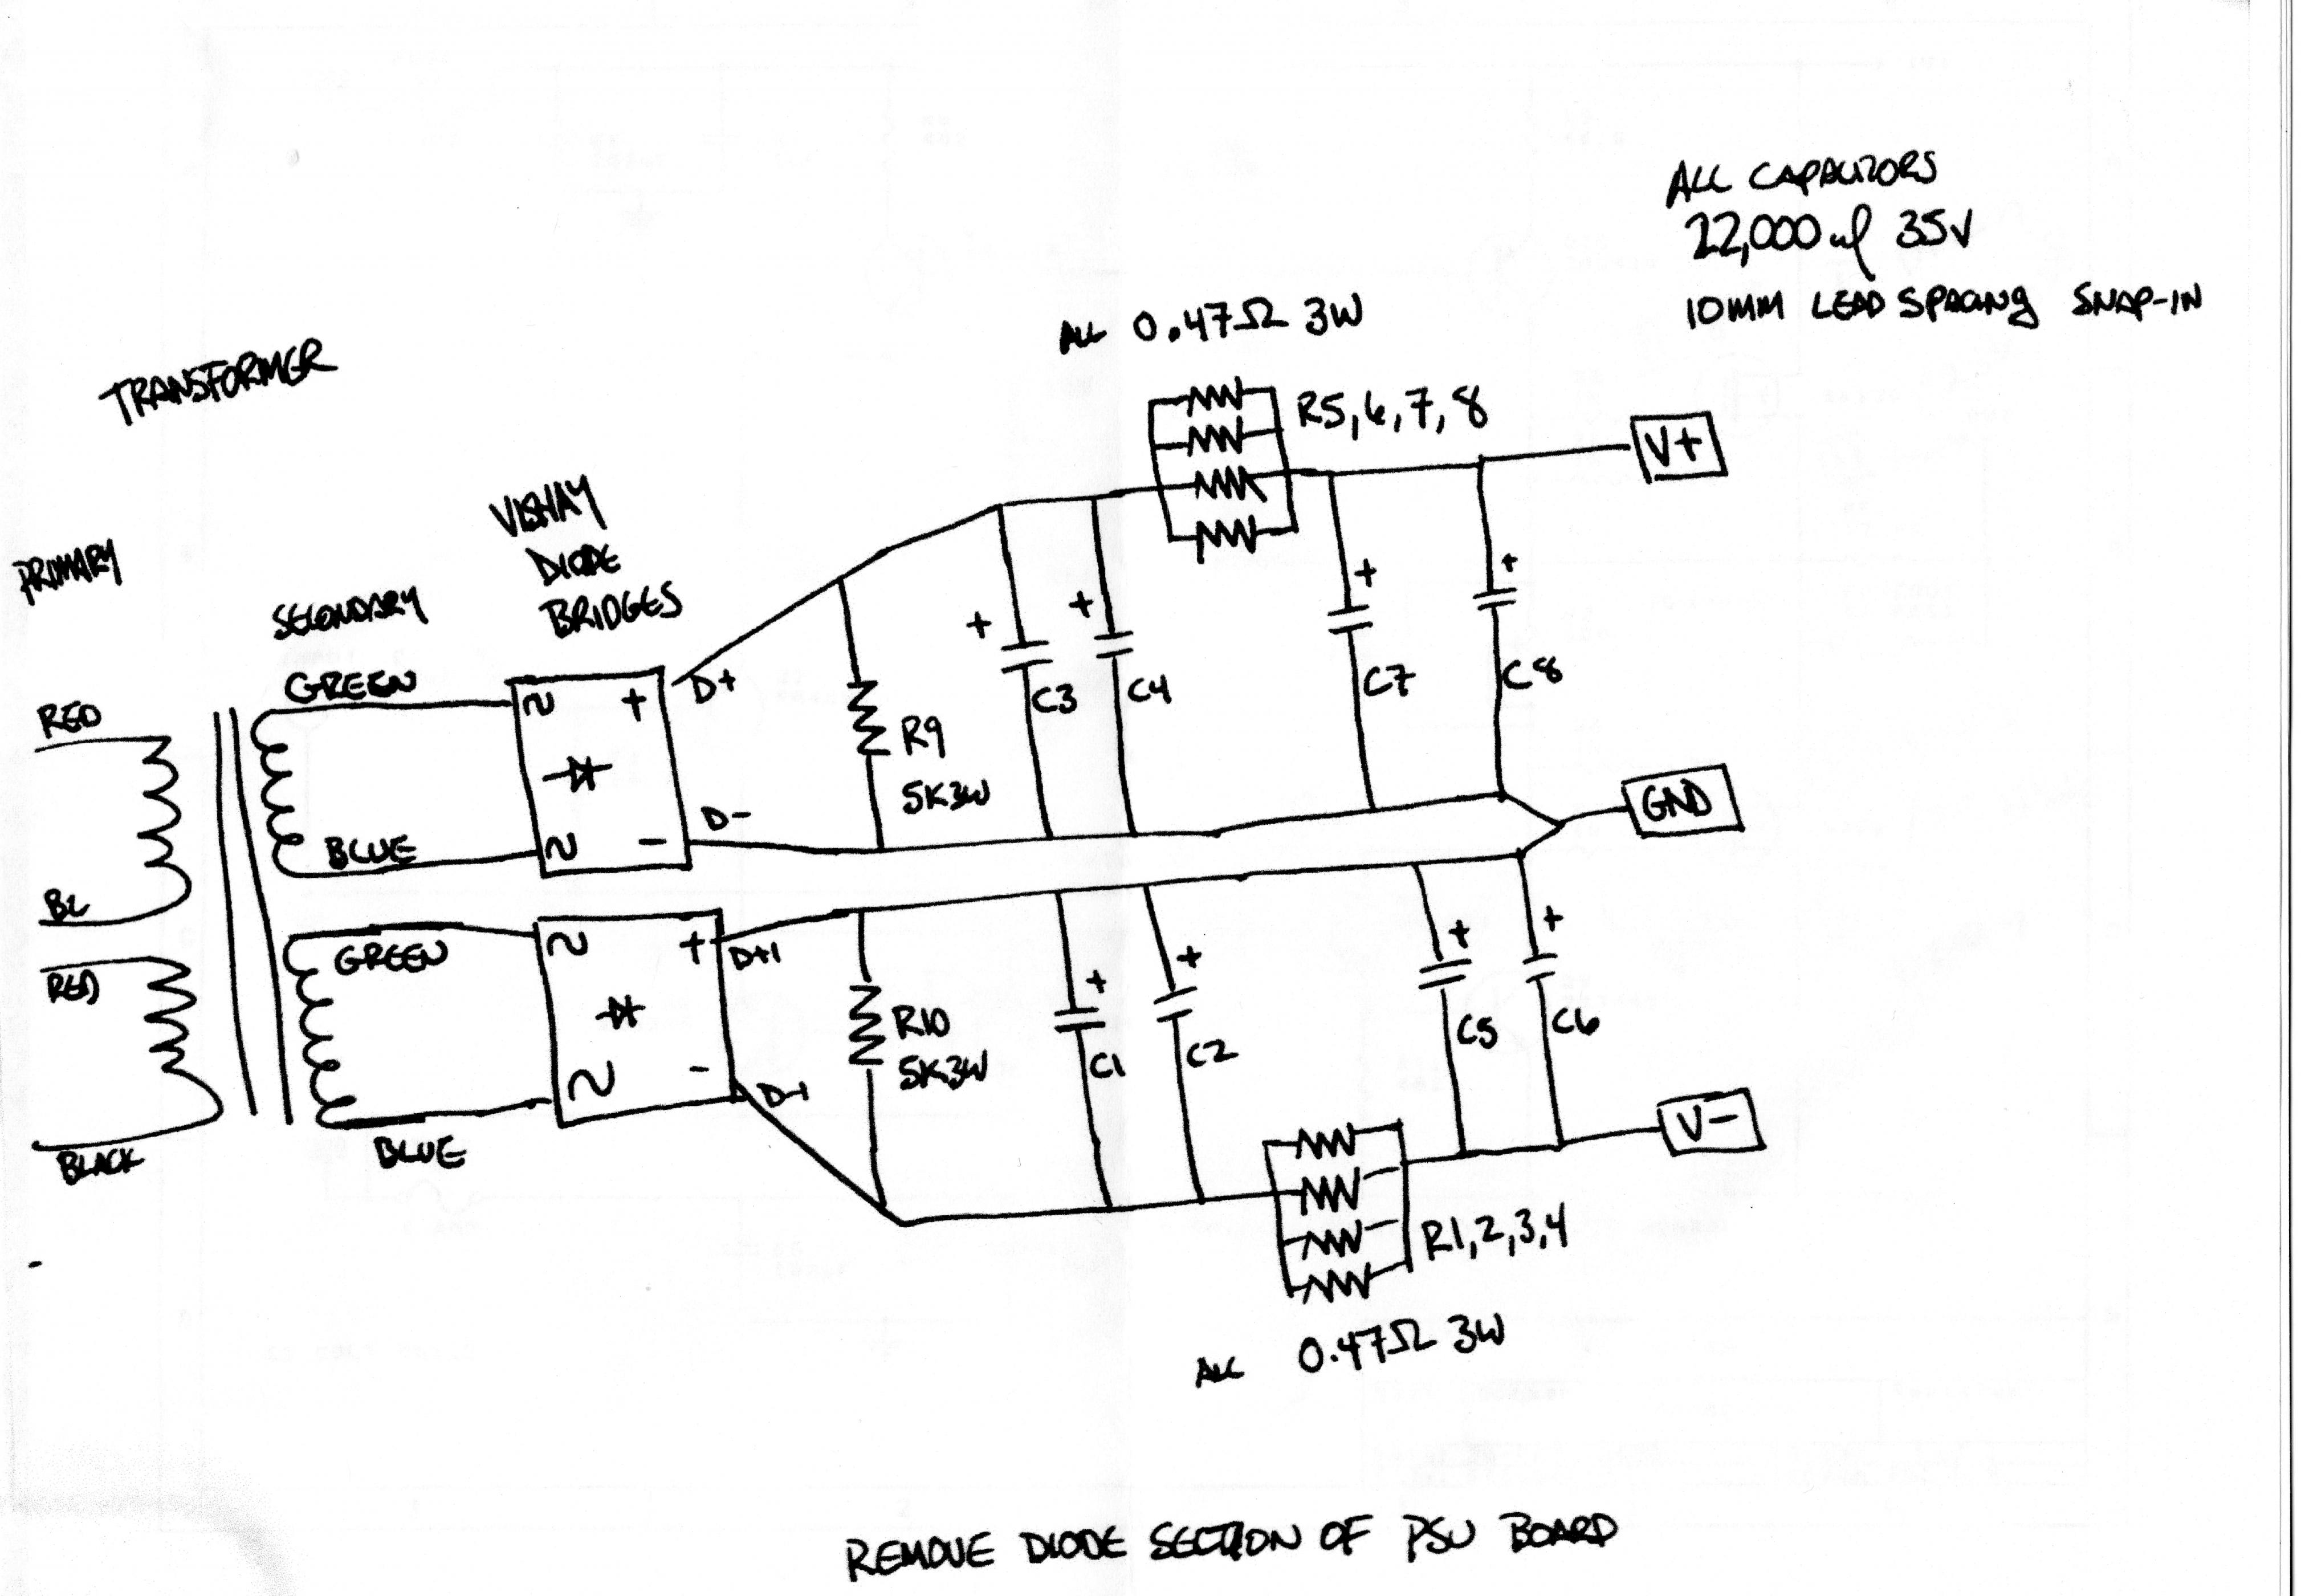 ALL CAPACITORS
22,000uf 35V
10MM LEAD SPACING SNAP-IN
ALL 0.47Ω 3W
TRANSFORMER
R5,6,7,8
V+
VISHAY
DIODE
BRIDGES
PRIMARY
SECONDARY
GREEN
RED
BLUE
BL
~ +
~ -
D+
D-
R9
5K3W
+
C3
+
C4
+
C7
+
C8
GND
GREEN
RED
BLUE
BLACK
~ +
~ -
D+1
D-1
R10
5K3W
+
C1
+
C2
+
C5
+
C6
V-
R1,2,3,4
ALL 0.47Ω 3W
REMOVE DIODE SECTION OF PSU BOARD